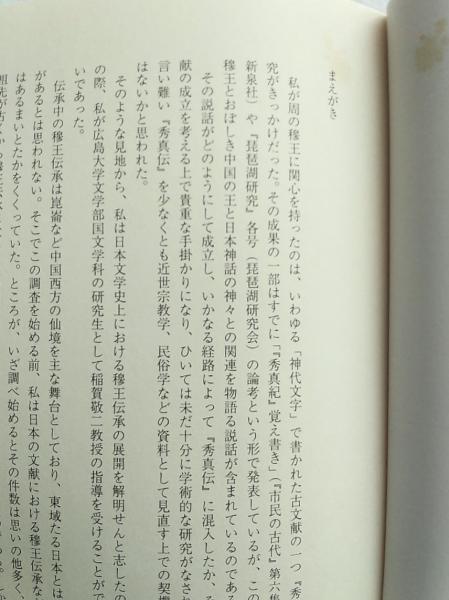 まえがき
私が周の穆王に関心を持ったのは、いわゆる「神代文字」で書かれた古文献の一つ『秀
究がきっかけだった。その成果の一部はすでに「『秀真紀』覚え書き」(『市民の古代』第六集
新泉社)や『琵琶湖研究』各号(琵琶湖研究会)の論考という形で発表しているが、この
穆王とおぼしき中国の王と日本神話の神々との関連を物語る説話が含まれているのである
その説話がどのようにして成立し、いかなる経路によって『秀真伝』に混入したか、そ
献の成立を考える上で貴重な手掛かりになり、ひいては未だ十分に学術的な研究がなさ
言い難い『秀真伝』を少なくとも近世宗教学、民俗学などの資料として見直す上での契機
はないかと思われた。
そのような見地から、私は日本文学史上における穆王伝承の展開を解明せんと志したの
の際、私が広島大学文学部国文学科の研究生として稲賀敬二教授の指導を受けることがで
いであった。
伝承中の穆王伝承は崑崙など中国西方の仙境を主な舞台としており、東域たる日本とは
があるとは思われない。そこでこの調査を始める前、私は日本の文献における穆王伝承な
はあるまいとたかをくくっていた。ところが、いざ調べ始めるとその件数は思いの他多く、